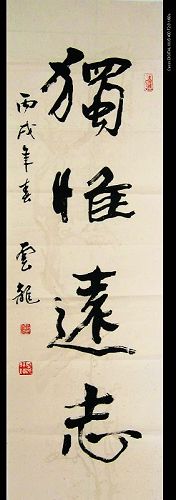 獨惟遠志
丙戌年春
雲龍